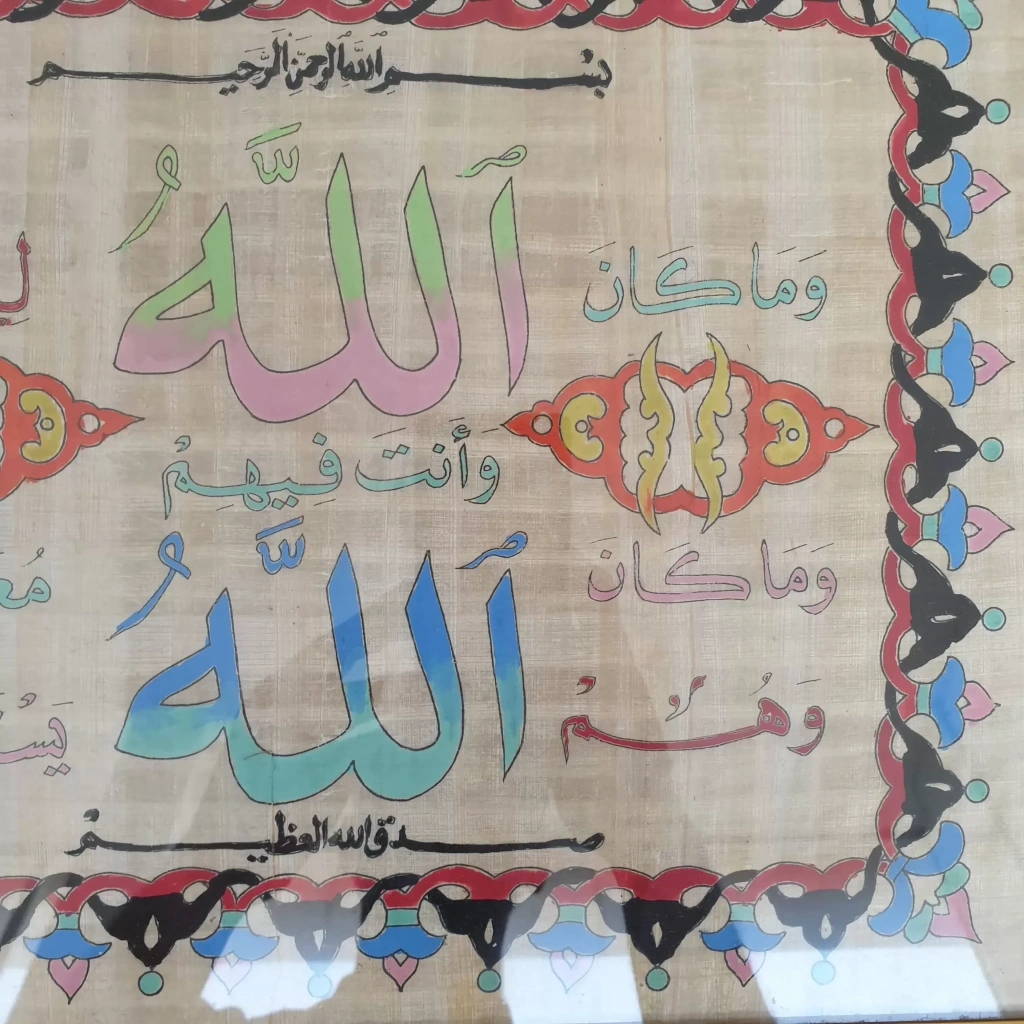 بِسْمِ اللَّهِ الرَّحْمَنِ الرَّحِيمِ
وَمَا كَانَ اللَّهُ
وَأَنتَ فِيهِمْ
وَمَا كَانَ اللَّهُ
وَهُمْ
صدق الله العظيم